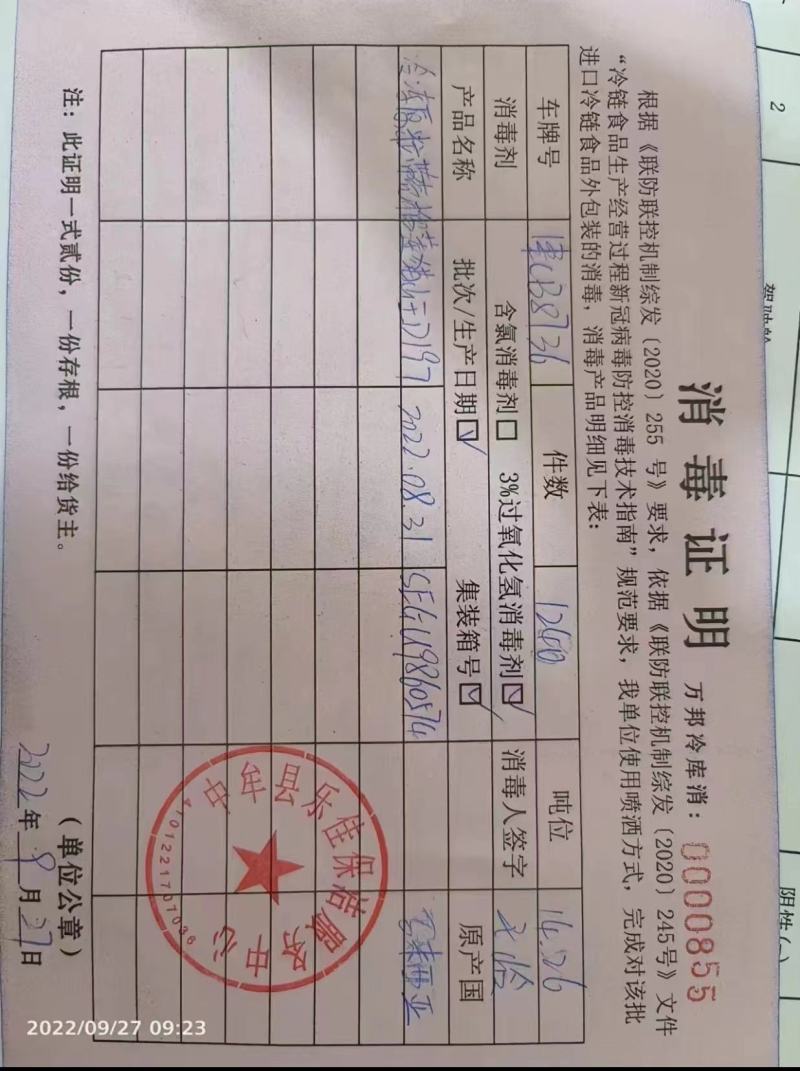 消毒证明
万邦冷库消：0000855
根据《联防联控机制综发〔2020〕255 号》要求，依据《联防联控机制综发〔2020〕245号》文件
“冷链食品生产经营过程新冠病毒防控消毒技术指南”规范要求，我单位使用喷洒方式，完成对该批
进口冷链食品外包装的消毒，消毒产品明细见下表：
车牌号 B8736 件数 1240 吨位 14.26
消毒剂 含氯消毒剂□ 3%过氧化氢消毒剂☑ 消毒人签字
产品名称 批次/生产日期☑ 集装箱号☑ 原产国
D197 2022.08.31 SEGU9860574 马来西亚
中牟县乐佳保洁服务中心
4101221701036
（单位公章）
2022年9月27日
注：此证明一式贰份，一份存根，一份给货主。
2
驾驶舱
阴性(-)
2022/09/27 09:23